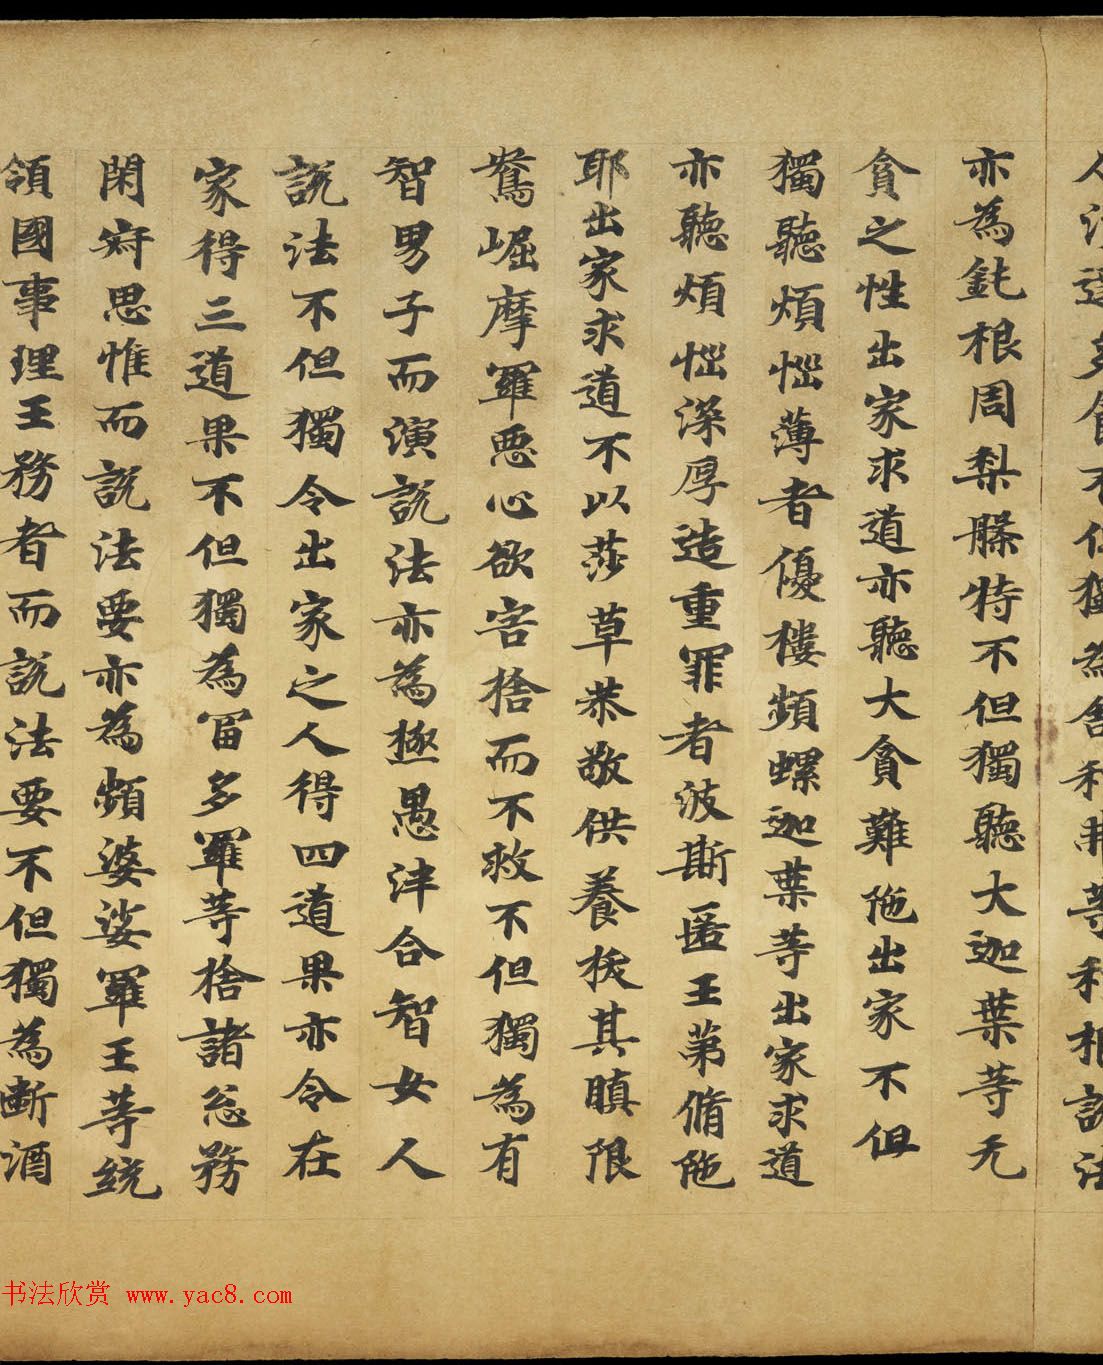 亦為鈍根周梨膝特不但獨聽大迦葉等无
貪之性出家求道亦聽大貪難陁出家不但
獨聽煩惱薄者優樓頻螺迦葉等出家求道
亦聽煩惱深厚造重罪者波斯匿王弟脩陁
耶出家求道不以莎草恭敬供養拔其瞋限
鴦崛摩羅惡心欲害捨而不救不但獨為有
智男子而演說法亦為極愚泮合智女人
說法不但獨令出家之人得四道果亦令在
家得三道果不但獨為富多羅等捨諸忩務
閑寂思惟而說法要亦為頻婆娑羅王等統
領國事理王務者而說法要不但獨為斷酒
书法欣赏 www.yac8.com